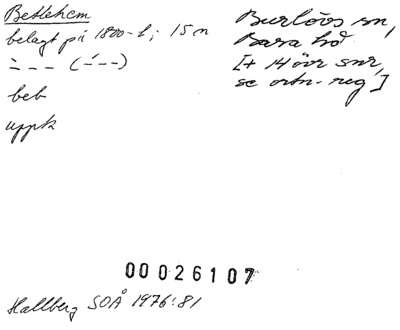 Betlehem
belagt på 1800-t; 15 n
∸ – – (–́ – –)
beb
uppk
Burlövs sn,
Bara hd
[+ 14 övr snr,
se ortn-reg]
00026107
Hallberg SOÅ 1976:81